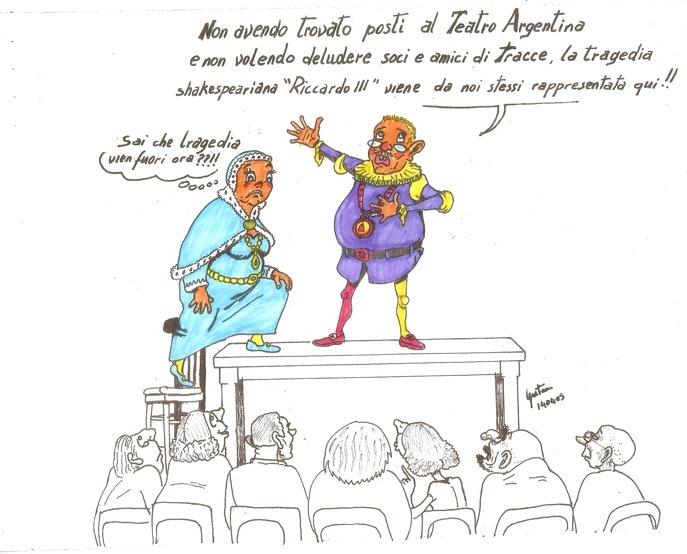 Non avendo trovato posti al Teatro Argentina
e non volendo deludere soci e amici di Tracce, la tragedia
shakespeariana "Riccardo III" viene da noi stessi rappresentata qui!!
Sai che tragedia
vien fuori ora??!!
140405